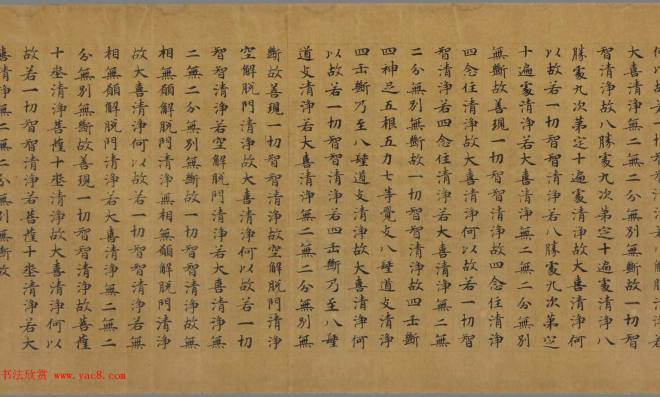 大喜清淨無二無二分無別無斷故一切智
智清淨故八勝處九次第定十遍處清淨八
勝處九次第定十遍處清淨故大喜清淨何
以故若一切智智清淨若八勝處九次第定
十遍處清淨若大喜清淨無二無二分無別
無斷故善現一切智智清淨故四念住清淨
四念住清淨故大喜清淨何以故若一切智
智清淨若四念住清淨若大喜清淨無二無
二分無別無斷故一切智智清淨故四正斷
四神足五根五力七等覺支八聖道支清淨
四正斷乃至八聖道支清淨故大喜清淨何
以故若一切智智清淨若四正斷乃至八聖
道支清淨若大喜清淨無二無二分無別無
斷故善現一切智智清淨故空解脫門清淨
空解脫門清淨故大喜清淨何以故若一切
智智清淨若空解脫門清淨若大喜清淨無
二無二分無別無斷故一切智智清淨故無
相無願解脫門清淨無相無願解脫門清淨
故大喜清淨何以故若一切智智清淨若無
相無願解脫門清淨若大喜清淨無二無二
分無別無斷故善現一切智智清淨故菩薩
十埊清淨菩薩十埊清淨故大喜清淨何以
故若一切智智清淨若菩薩十埊清淨若大
喜清淨無二無二分無別無斷故
书法欣赏
www.yac8.com